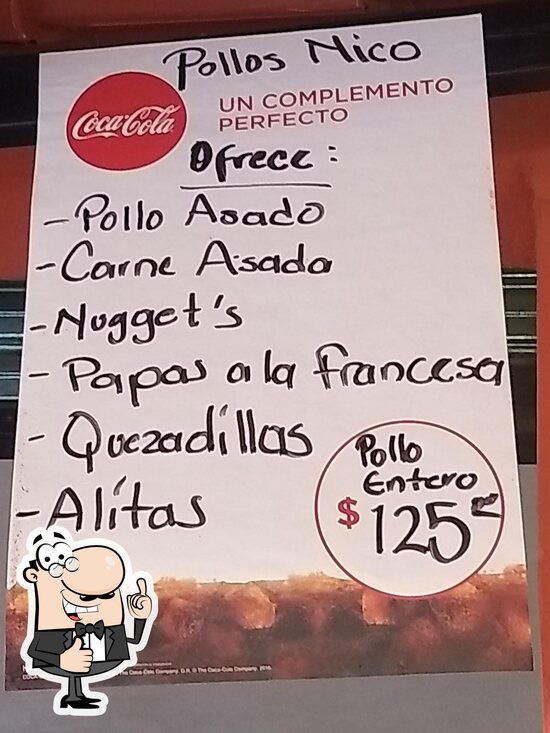 Pollos Nico
Coca-Cola
UN COMPLEMENTO
PERFECTO
Ofrece:
- Pollo Asado
- Carne Asada
- Nugget's
- Papas a la francesa
- Quezadillas
- Alítas
Pollo
Entero
$ 125
The Coca-Cola Company. D.R. © The Coca-Cola Company, 2016.